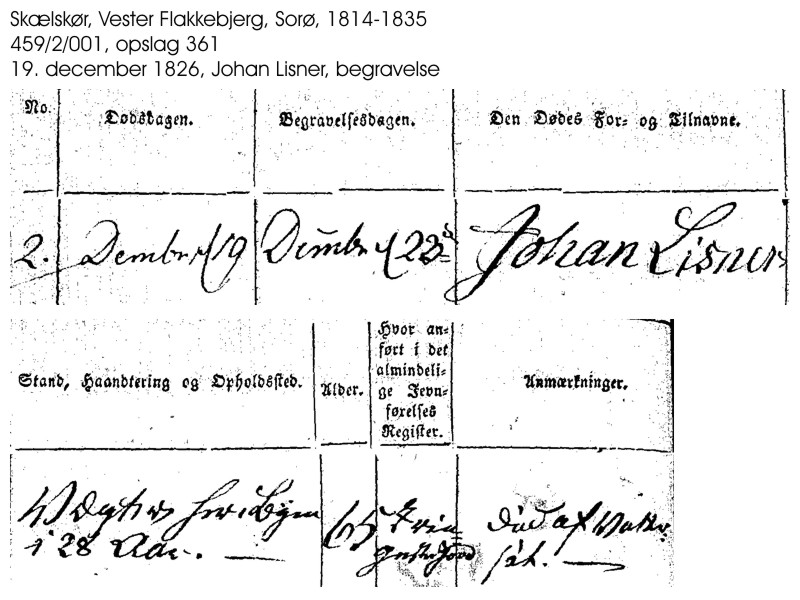 Skælskør, Vester Flakkebjerg, Sorø, 1814-1835
459/2/001, opslag 361
19. december 1826, Johan Lisner, begravelse
No.
Dødsdagen.
Begravelsesdagen.
Den Dødes For= og Tilnavne.
2.
Dembr 19
Dембr 23
Johan Lisner
Stand, Haandtering og Opholdssted.
Alder.
Hvor an=
ført i det
almindeli=
ge Jevn=
førelses
Register.
Anmærkninger.
Vægter her i Byen
i 28 Aar.
65
Død af Vatter
sot.